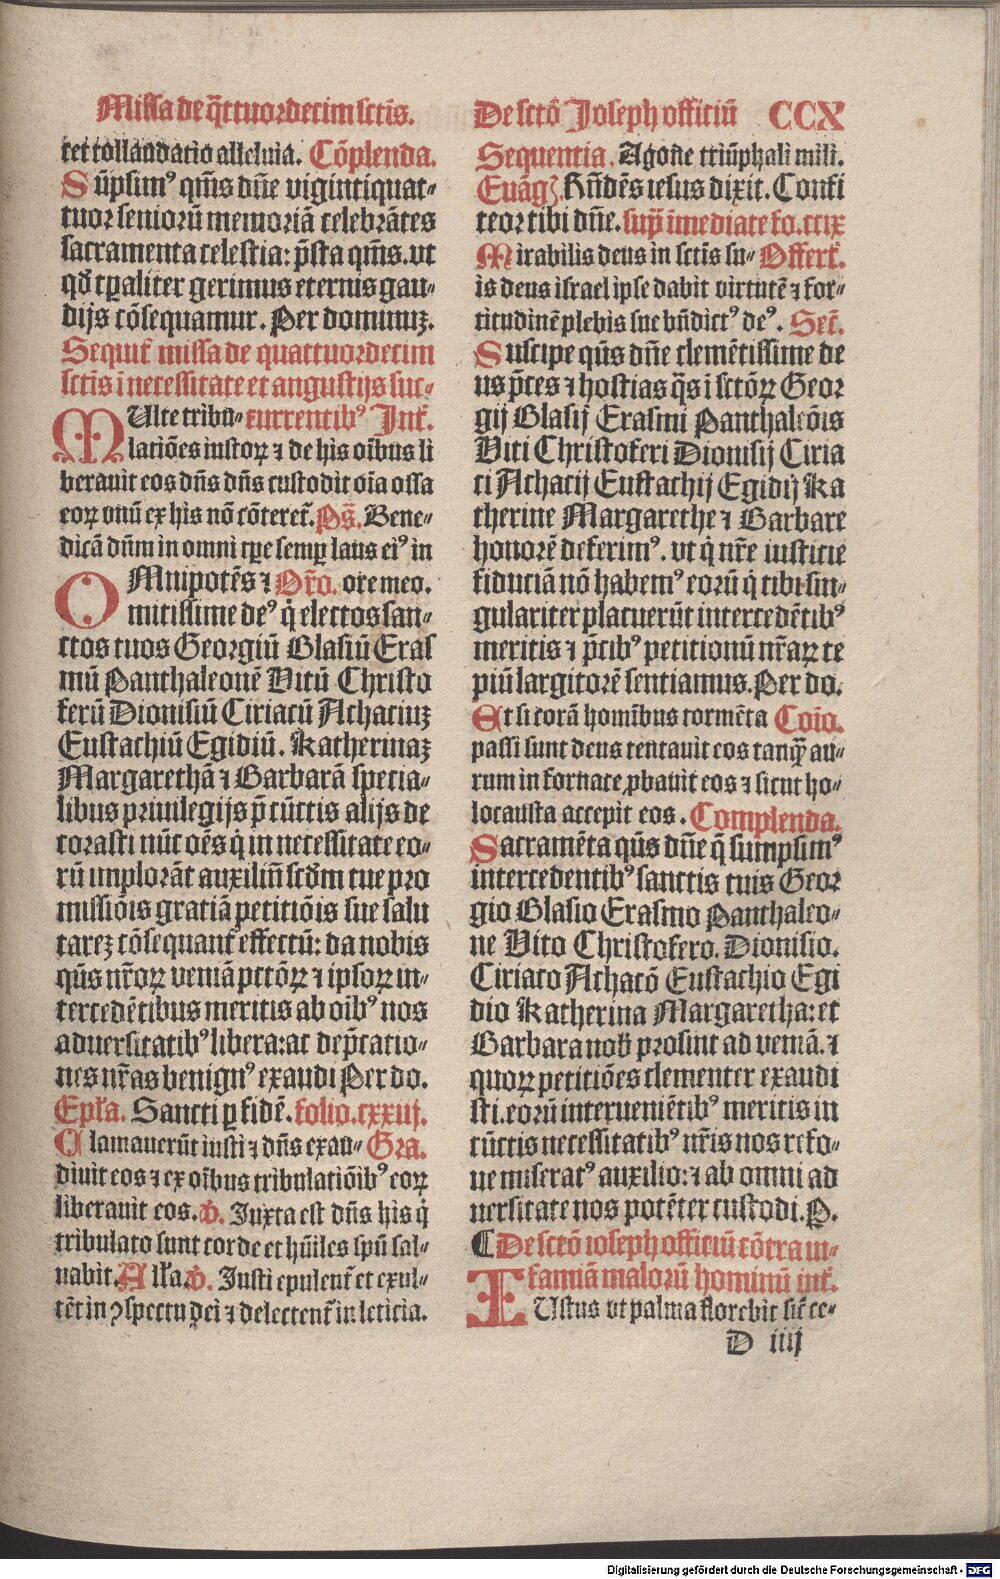 Missa de q̄ttuordecim sctīs.
cet collaudatio alleluia. Cōplenda.
Sūpsimꝰ qm̄s dn̄e vigintiquat-
tuor senioꝝ memoriā celebrātes
sacramenta celestia: p̄sta qm̄s. vt
qđ tꝑaliter gerimus eternis gau-
dijs cōsequamur. Per dominuꝫ.
Sequit̄ missa de quattuordecim
sctīs ī necessitate et angustijs suc-
MUlte tribu- currentibꝰ Int̄.
latiōes iustoꝝ ⁊ de his oībus li
berauit eos dn̄s dn̄s custodit oīa ossa
eoꝝ vnū ex his nō cōteret̄. Ps̄. Bene-
dicā dn̄m in omni tꝑe semꝑ laus eiꝰ in
OMnipotēs ⁊ Or̄o. ore meo.
mitissime deꝰ q̇ electos san-
ctos tuos Georgiū Blasiū Eras
mū Panthaleonē Vitū Christo
ferū Dionisiū Ciriacū Achaciuꝫ
Eustachiū Egidiū. Katherinaꝫ
Margarethā ⁊ Barbarā specia-
libus priuilegijs p̄ cūctis alijs de
corasti nūc oēs q̇ in necessitate eo-
rū implorāt auxiliū scđm tue pro
missiōis gratiā petitiōis sue salu
tareꝫ cōsequant̄ effectū: da nobis
qūs nr̄oꝝ veniā pctōꝝ ⁊ ipsoꝝ in-
tercedētibus meritis ab oībꝰ nos
aduersitatibꝰ libera: ac dep̄catio-
nes nr̄as benignꝰ exaudi Per do.
Epl̄a. Sancti ꝑ fidē. folio. cxxiij.
Clamauerūt iusti ⁊ dn̄s exau- Gra.
diuit eos ⁊ ex oībus tribulatiōibꝰ eoꝝ
liberauit eos. ℣. Juxta est dn̄s his q̇
tribulato sunt corde et hūiles spū sal-
uabit. All̄a. ℣. Justi epulent̄ et exul-
tēt in ꝯspectu dei ⁊ delectent̄ in leticia.
De sctō Joseph officiū CCX
Sequentia. Agone triūphali mili.
Euāgꝫ. Rn̄dēs iesus dixit. Confi
teor tibi dn̄e. sup̄ īmediate fo. ccix
Mirabilis deus in sctīs su- Offert̄.
is deus israel ipse dabit virtutē ⁊ for-
titudinē plebis sue bn̄dictꝰ deꝰ. Set̄.
Suscipe qūs dn̄e clemētissime de
us p̄ces ⁊ hostias q̄s ī sctōꝝ Geor
gij Blasij Erasmi Panthaleōis
Viti Christoferi Dionisij Ciria
ci Achacij Eustachij Egidij Ka
therine Margarethe ⁊ Barbare
honorē deferimꝰ. vt q̇ nr̄e iusticie
fiduciā nō habemꝰ eorū q̇ tibi sin-
gulariter placuerūt intercedētibꝰ
meritis ⁊ p̄cibꝰ petitionū nr̄aꝝ te
piū largitorē sentiamus. Per do.
Et si corā homībus tormēta Coīo.
passi sunt deus tentauit eos tanq̄ au-
rum in fornace ꝓbauit eos ⁊ sicut ho-
locausta accepit eos. Complenda.
Sacramēta qūs dn̄e q̄ sumpsimꝰ
intercedentibꝰ sanctis tuis Geor
gio Blasio Erasmo Panthaleo-
ne Vito Christofero. Dionisio.
Ciriaco Achacō Eustachio Egi
dio Katherina Margaretha: et
Barbara nob̄ prosint ad veniā. ⁊
quoꝝ petitiōes clementer exaudi
sti. eorū interueniētibꝰ meritis in
cūctis necessitatibꝰ nr̄is nos refo-
ue miseratꝰ auxilio: ⁊ ab omni ad
uersitate nos potēter custodi. P.
De sctō ioseph officiū cōtra in-
famiā malorū hominū int̄.
IUstus vt palma florebit sic̄ ce-
D iiij
Digitalisierung gefördert durch die Deutsche Forschungsgemeinschaft - DFG